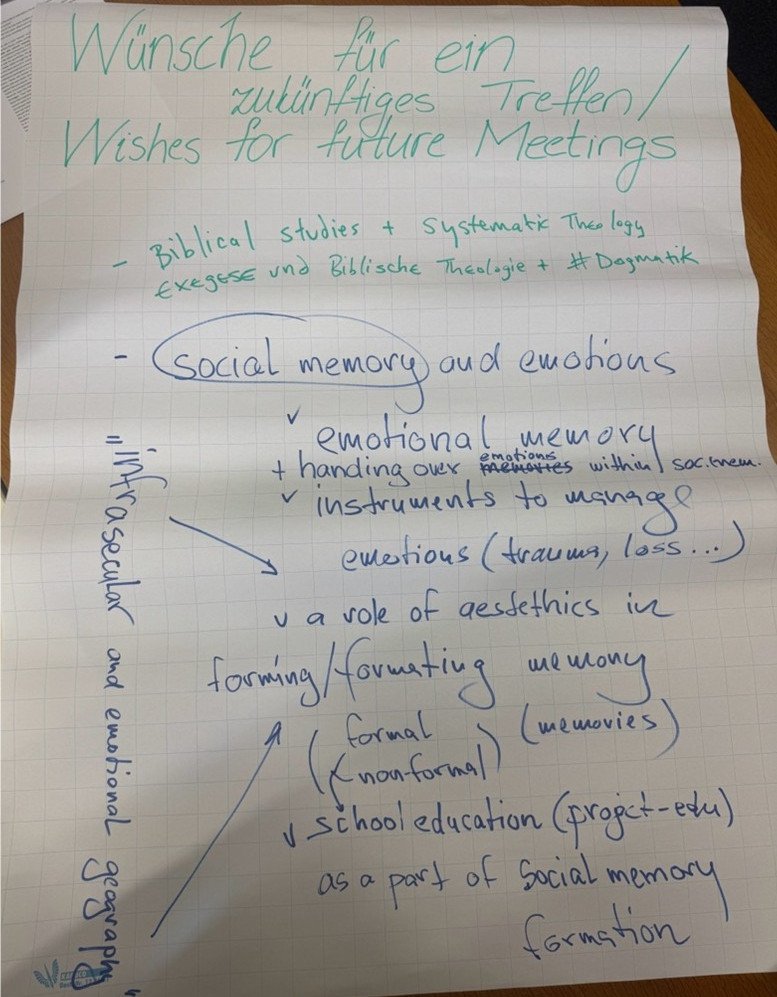 Wünsche für ein
zukünftiges Treffen/
Wishes for future Meetings
- Biblical studies + Systematic Theology
Exegese und Biblische Theologie + # Dogmatik
- social memory and emotions
v emotional memory
emotions
+ handing over memories within soc. mem.
v instruments to manage
emotions (trauma, loss...)
v a role of aestethics in
forming/formating memory
(formal (memories)
non-formal)
v school education (projct-edu)
as a part of Social memory
formation
"infrasecular and emotional geography"